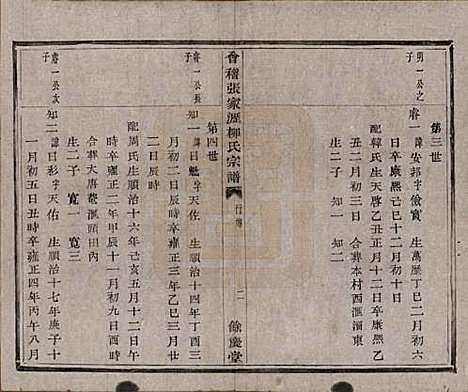 第三世
勇一公之
子
睿一 諱安邦字儉賓 生萬歷丁巳二月初六
日卒康熙己巳十二月初十日
配韓氏生天啓乙丑正月十二日卒康熙乙
丑二月初三日 合葬本村西滙瀕東
生二子 知一 知二
會稽張家瀝柳氏宗譜 行傳 二 餘慶堂
第四世
睿一公長
子
知一 諱日魁字天佐 生順治十四年丁酉三
月初二日辰時卒雍正三年乙巳三月廿
二日辰時
配周氏生順治十六年己亥五月十二日
時卒雍正二年甲辰十一月初九日酉時
合葬大唐菴滙頭田內
生二子 寬一 寬三
睿一公次
子
知二 諱日彩字天佑 生順治十七年庚子十
一月初五日丑時卒雍正四年丙午八月